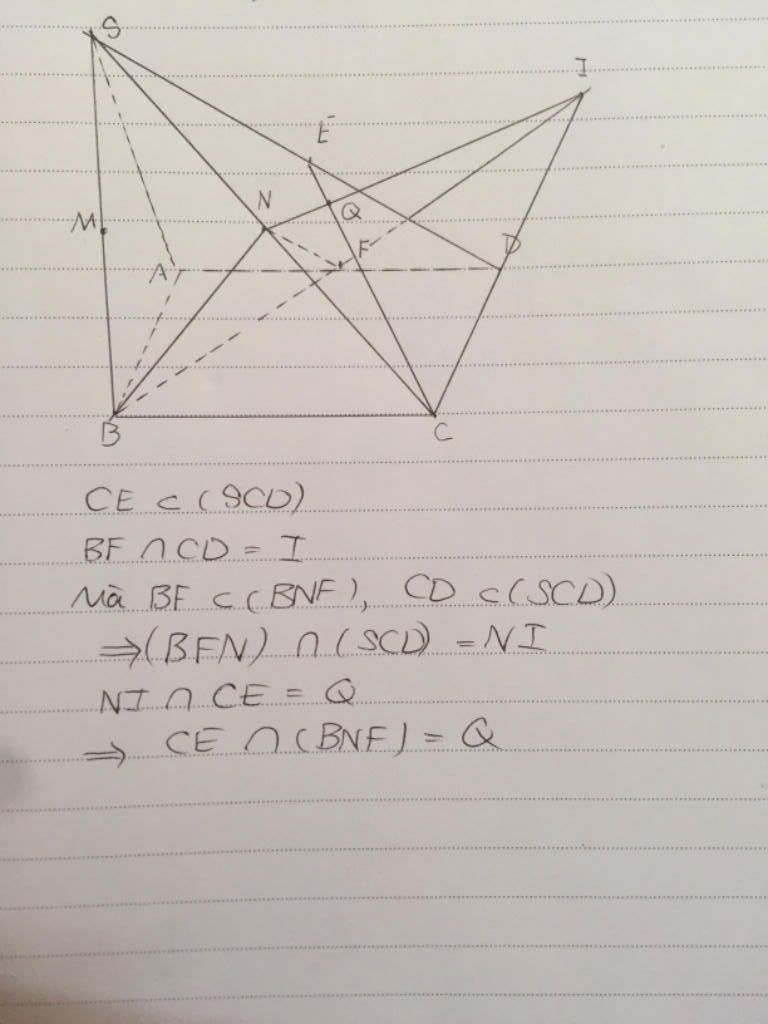 S
I
E
N
Q
M
F
D
A
B
C
CE ⊂ (SCD)
BF ∩ CD = I
Mà BF ⊂ (BNF), CD ⊂ (SCD)
⇒ (BFN) ∩ (SCD) = NI
NI ∩ CE = Q
⇒ CE ∩ (BNF) = Q